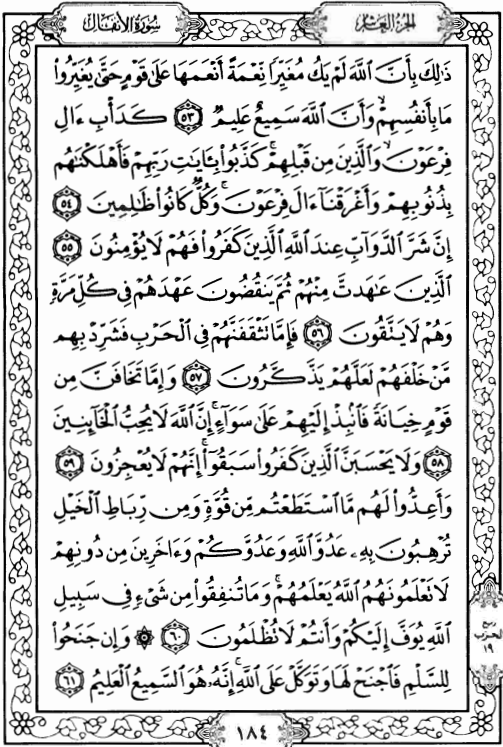 سُورَةُ الأَنفَال الجُزءُ العَاشِر
ذَٰلِكَ بِأَنَّ ٱللَّهَ لَمۡ يَكُ مُغَيِّرٗا نِّعۡمَةً أَنۡعَمَهَا عَلَىٰ قَوۡمٍ حَتَّىٰ يُغَيِّرُواْ
مَا بِأَنفُسِهِمۡ وَأَنَّ ٱللَّهَ سَمِيعٌ عَلِيمٞ ٥٣ كَدَأۡبِ ءَالِ
فِرۡعَوۡنَ وَٱلَّذِينَ مِن قَبۡلِهِمۡۚ كَذَّبُواْ بِـَٔايَٰتِ رَبِّهِمۡ فَأَهۡلَكۡنَٰهُم
بِذُنُوبِهِمۡ وَأَغۡرَقۡنَآ ءَالَ فِرۡعَوۡنَۚ وَكُلّٞ كَانُواْ ظَٰلِمِينَ ٥٤
إِنَّ شَرَّ ٱلدَّوَآبِّ عِندَ ٱللَّهِ ٱلَّذِينَ كَفَرُواْ فَهُمۡ لَا يُؤۡمِنُونَ ٥٥
ٱلَّذِينَ عَٰهَدتَّ مِنۡهُمۡ ثُمَّ يَنقُضُونَ عَهۡدَهُمۡ فِي كُلِّ مَرَّةٖ
وَهُمۡ لَا يَتَّقُونَ ٥٦ فَإِمَّا تَثۡقَفَنَّهُمۡ فِي ٱلۡحَرۡبِ فَشَرِّدۡ بِهِم
مَّنۡ خَلۡفَهُمۡ لَعَلَّهُمۡ يَذَّكَّرُونَ ٥٧ وَإِمَّا تَخَافَنَّ مِن
قَوۡمٍ خِيَانَةٗ فَٱنۢبِذۡ إِلَيۡهِمۡ عَلَىٰ سَوَآءٍۚ إِنَّ ٱللَّهَ لَا يُحِبُّ ٱلۡخَآئِنِينَ
٥٨ وَلَا يَحۡسَبَنَّ ٱلَّذِينَ كَفَرُواْ سَبَقُوٓاْۚ إِنَّهُمۡ لَا يُعۡجِزُونَ ٥٩
وَأَعِدُّواْ لَهُم مَّا ٱسۡتَطَعۡتُم مِّن قُوَّةٖ وَمِن رِّبَاطِ ٱلۡخَيۡلِ
تُرۡهِبُونَ بِهِۦ عَدُوَّ ٱللَّهِ وَعَدُوَّكُمۡ وَءَاخَرِينَ مِن دُونِهِمۡ
لَا تَعۡلَمُونَهُمُ ٱللَّهُ يَعۡلَمُهُمۡۚ وَمَا تُنفِقُواْ مِن شَيۡءٖ فِي سَبِيلِ
ٱللَّهِ يُوَفَّ إِلَيۡكُمۡ وَأَنتُمۡ لَا تُظۡلَمُونَ ٦٠ ۞ وَإِن جَنَحُواْ
لِلسَّلۡمِ فَٱجۡنَحۡ لَهَا وَتَوَكَّلۡ عَلَى ٱللَّهِۚ إِنَّهُۥ هُوَ ٱلسَّمِيعُ ٱلۡعَلِيمُ ٦١
ربع
الحزب
١٩
١٨٤